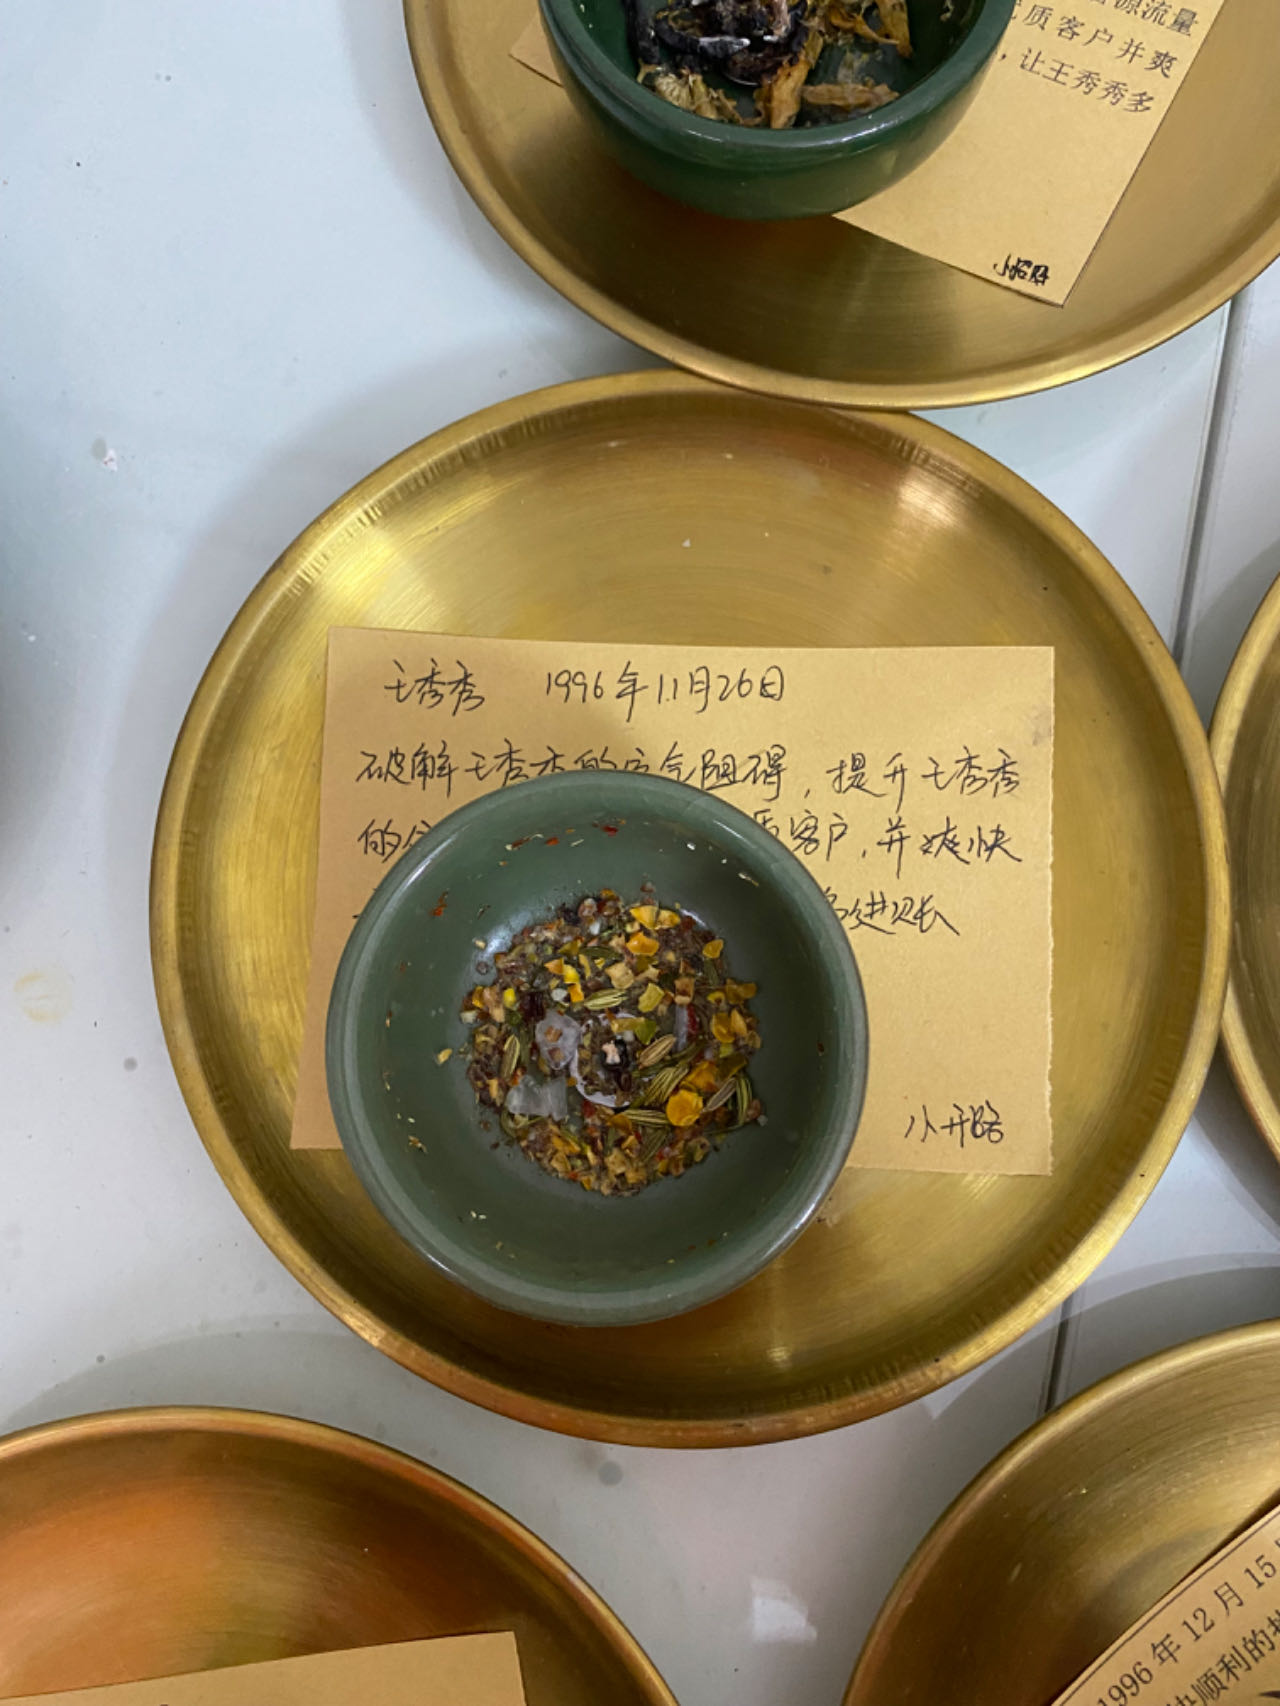 源流量
质客户并爽
，让王秀秀多
小招财
王秀秀 1996年11月26日
破解王秀秀的空气阻碍，提升王秀秀
的 质客户，并爽快
多进账
小开路
1996年12月15
顺利的